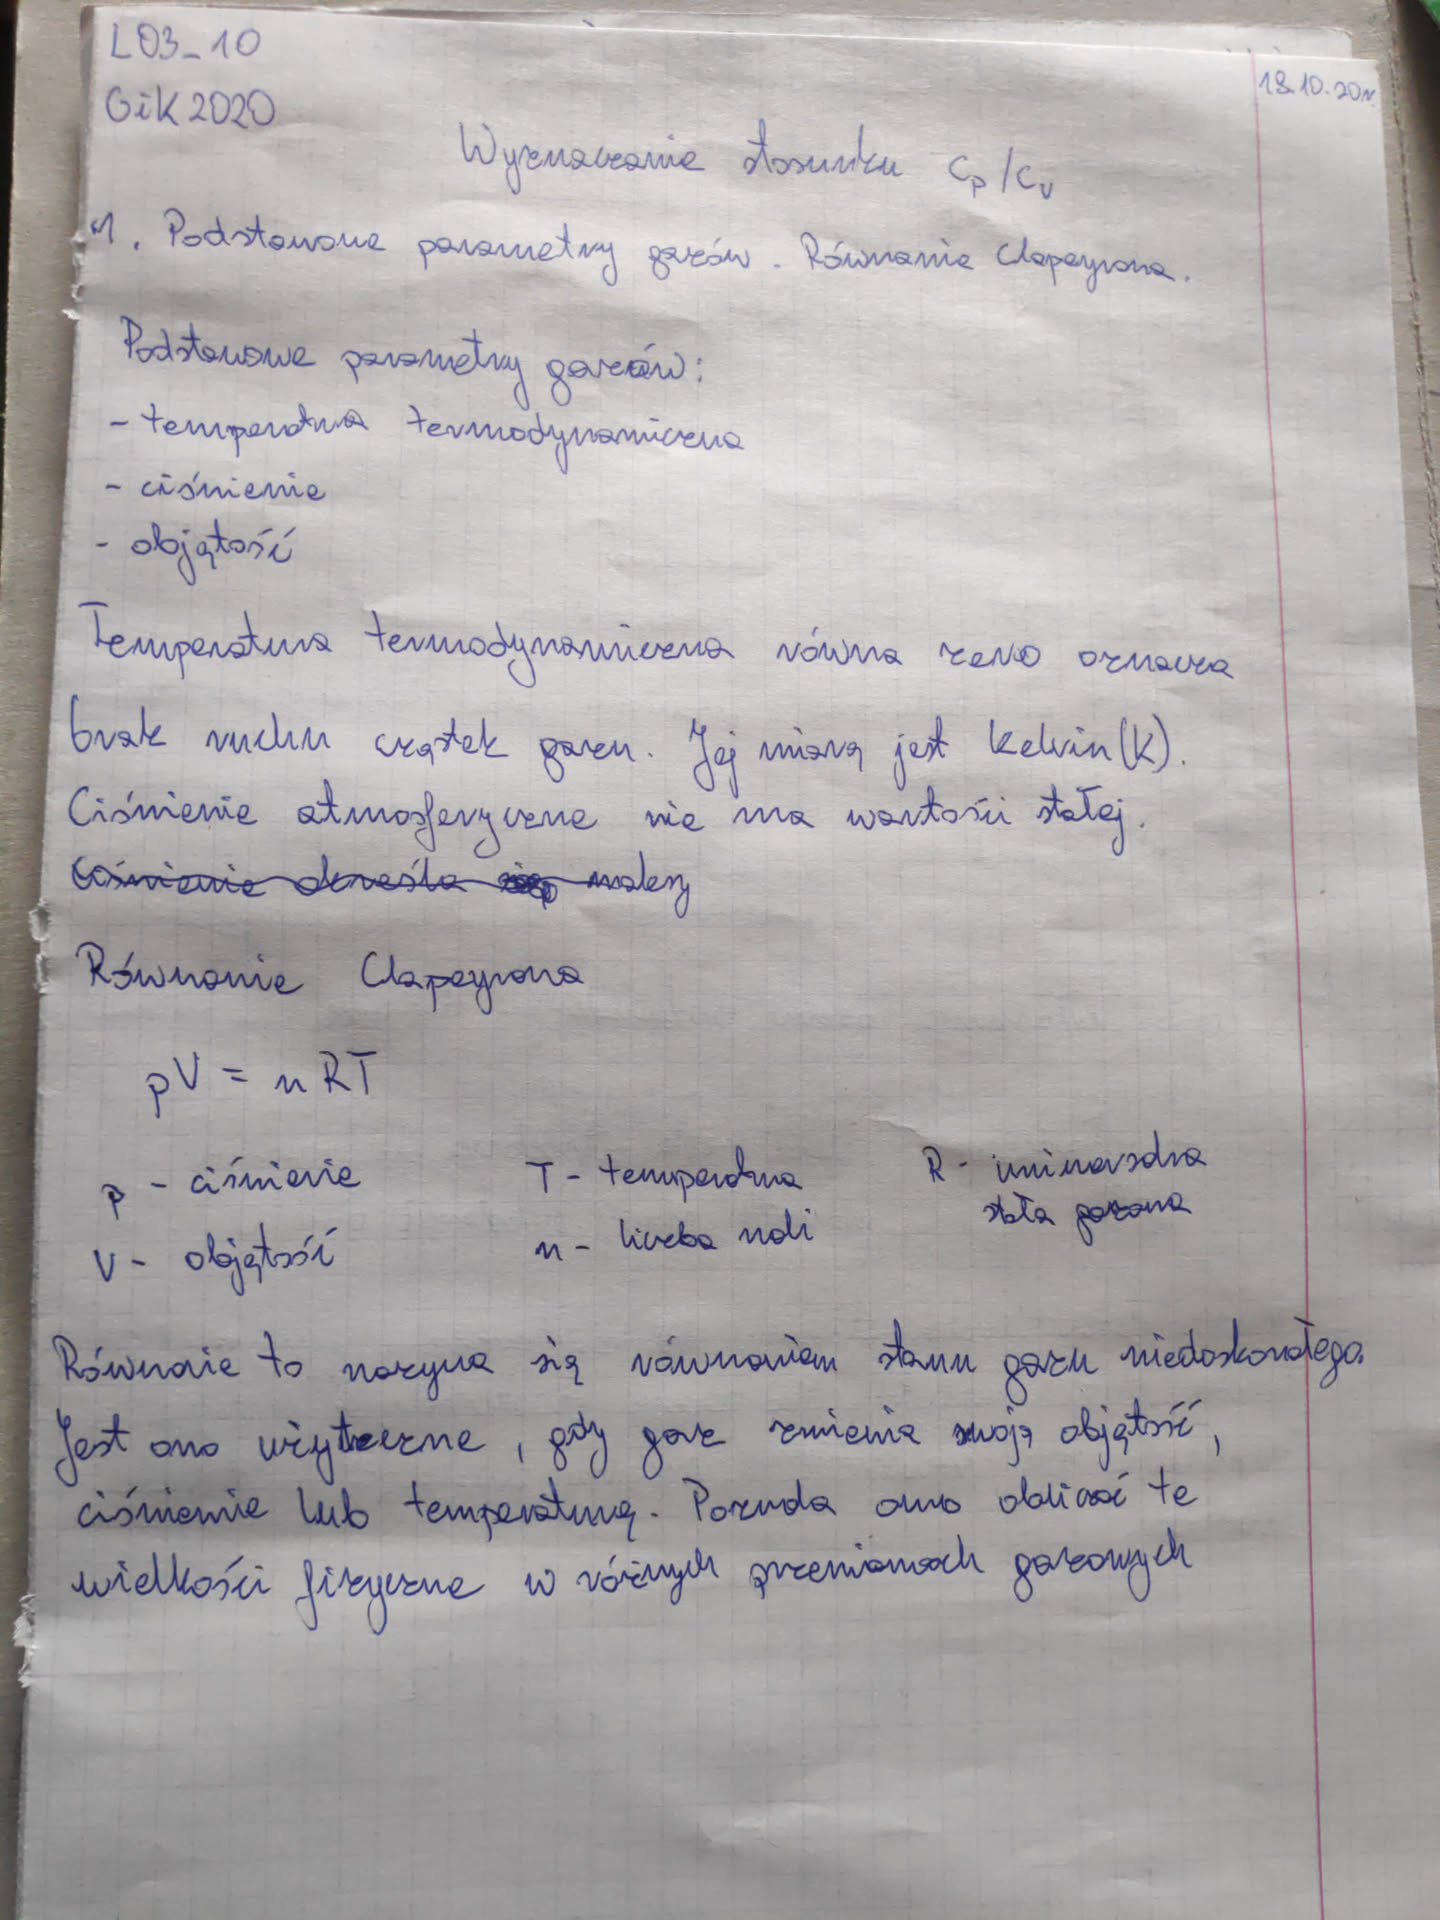 L03_10
GiK 2020
19.10.20r.
Wyznaczanie stosunku cp/cv
1. Podstawowe parametry gazów. Równanie Clapeyrona.
Podstawowe parametry gazów:
- temperatura termodynamiczna
- ciśnienie
- objętość
Temperatura termodynamiczna równa zero oznacza
brak ruchu cząstek gazu. Jej miarą jest Kelvin (K).
Ciśnienie atmosferyczne nie ma wartości stałej.
Ciśnienie określa się należy
Równanie Clapeyrona
pV = nRT
p - ciśnienie T - temperatura R - uniwersalna
stała gazowa
V - objętość n - liczba moli
Równanie to nazywa się równaniem stanu gazu niedoskonałego.
Jest ono użyteczne, gdy gaz zmienia swoją objętość,
ciśnienie lub temperaturę. Pozwala ono obliczać te
wielkości fizyczne w różnych przemianach gazowych